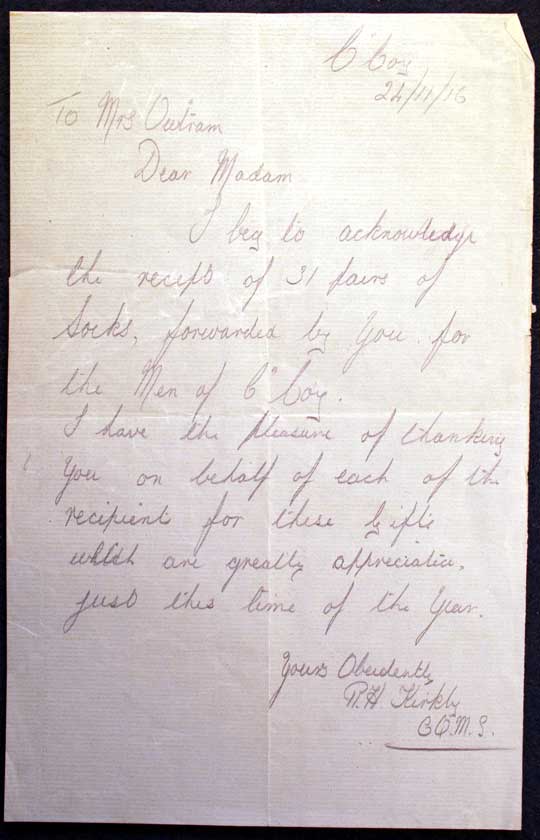 C" Coy
24/11/16
To Mrs Outram
Dear Madam
I beg to acknowledge
the recept of 31 pairs of
Socks, forwarded by You for
the Men of C" Coy.
I have the pleasure of thanking
You on behalf of each of the
recipient for these Gifts
which are greatly appreciated,
just this time of the Year.
Yours Obediently
R.H. Kirkby
C.Q.M.S.